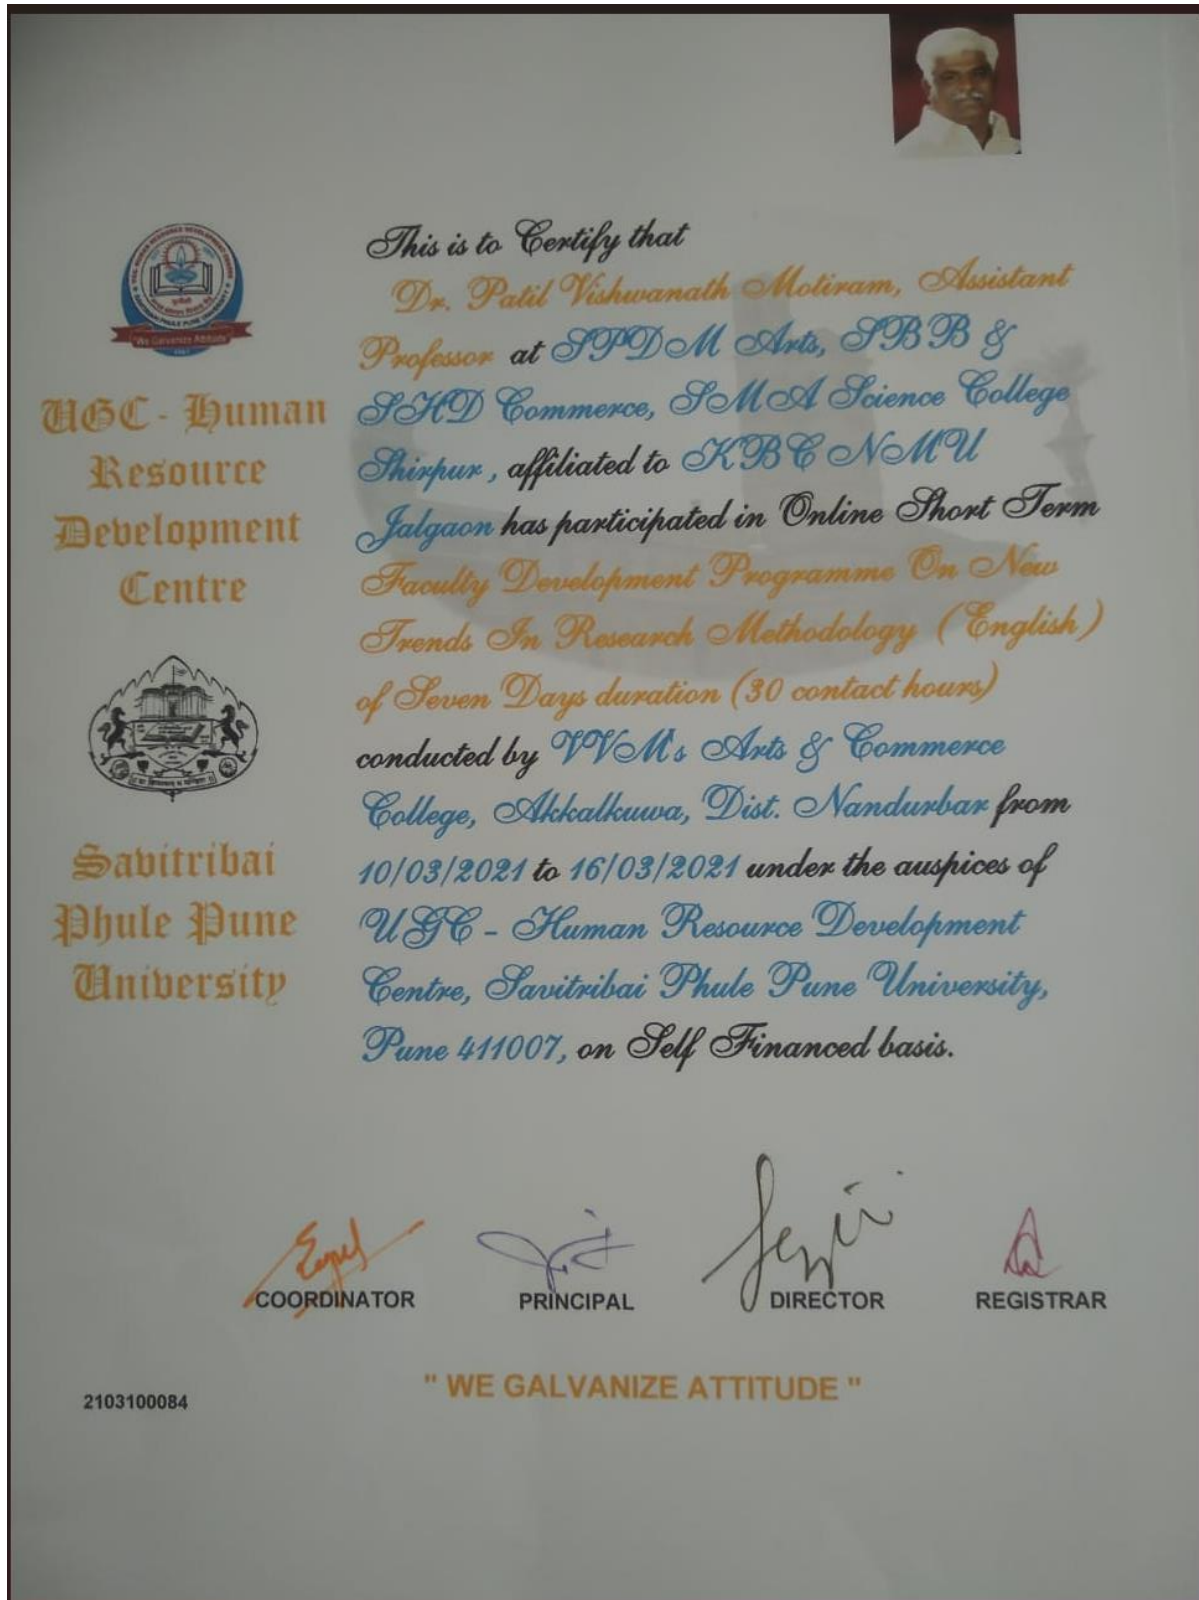 UGC - HUMAN RESOURCE DEVELOPMENT CENTRE
SAVITRIBAI PHULE PUNE UNIVERSITY
"We Galvanize Attitude"
UGC - Human
Resource
Development
Centre
Savitribai
Phule Pune
University
This is to Certify that
Dr. Patil Vishwanath Motiram, Assistant
Professor at SPDM Arts, SBB &
SHD Commerce, SMA Science College
Shirpur , affiliated to KBC NMU
Jalgaon has participated in Online Short Term
Faculty Development Programme On New
Trends In Research Methodology ( English )
of Seven Days duration (30 contact hours)
conducted by VVM's Arts & Commerce
College, Akkalkuwa, Dist. Nandurbar from
10/03/2021 to 16/03/2021 under the auspices of
UGC - Human Resource Development
Centre, Savitribai Phule Pune University,
Pune 411007, on Self Financed basis.
COORDINATOR
PRINCIPAL
DIRECTOR
REGISTRAR
2103100084
" WE GALVANIZE ATTITUDE "